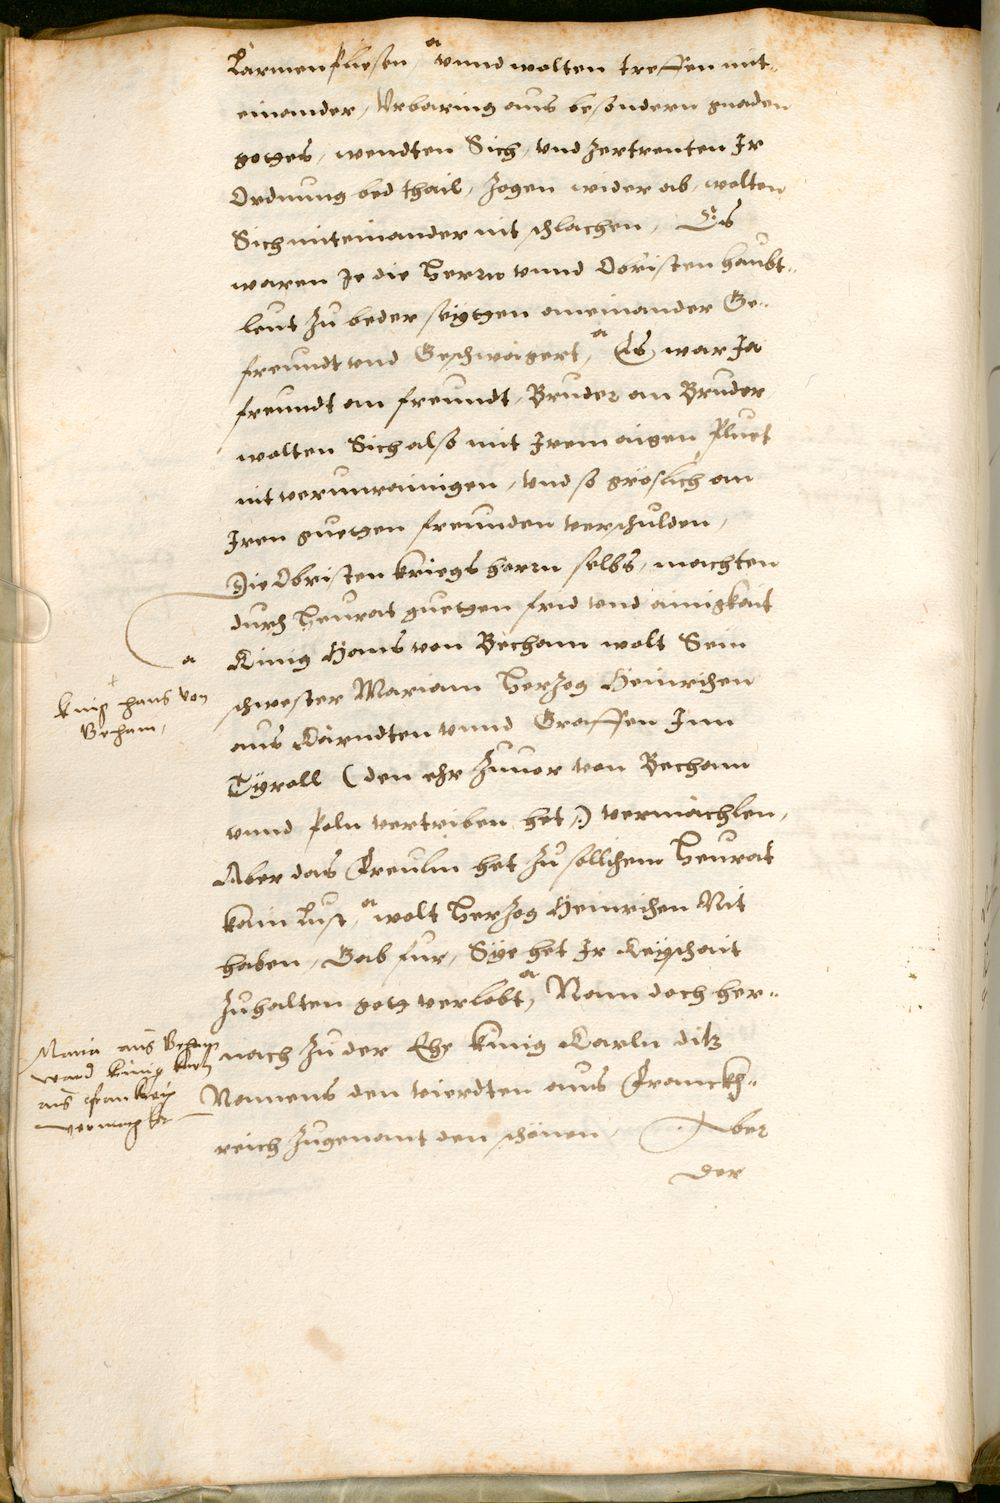 Lärmen pliesen, vnnd wolten treffen mit-
einander, Vrbaring aus besondern gnaden
gotes, wendten Sich, vnd zertrenten Ir
Ordnung bed thail, zogen wider ab, wolten
Sich miteinander nit schlachen, Es
waren Je die Herrn vnnd Obristen haubt-
leut zu beder seytgen aneinander Ge-
freundt vnd Geschwägert, Es war Ja
freundt an freundt, Bruder an Bruder
wolten Sich also mit Irem aigen Pluet
nit verunrainigen, vnd so gröslich an
Iren guetgen freunden verschulden,
Die Obristen kriegs herrn selbs, machten
durch Heurat guetgen frid vnd ainigkait
König Hans von Becham wolt Sein
schwester Mariam Herzog Heinrichen
aus Kärndten vnnd Graffen Inn
Tyroll (den ehr zuuor von Becham
vnnd Poln vertriben het,) vermächlen,
Aber das Freulin het zu sollichem Heurat
kain Lust, wolt Herzog Heinrichen Nit
haben, Gab fur, Sye het Ir Keyschait
zuhalten gotg verlobt, Nam doch her-
nach zu der Ehe König Karln ditz
Namens den vierdten aus Franckh-
reich zugenant den schönen, Aber
der
König Hans von
Becham,
Maria aus Becham
ward König Karl
aus Frankreich
vermeglet